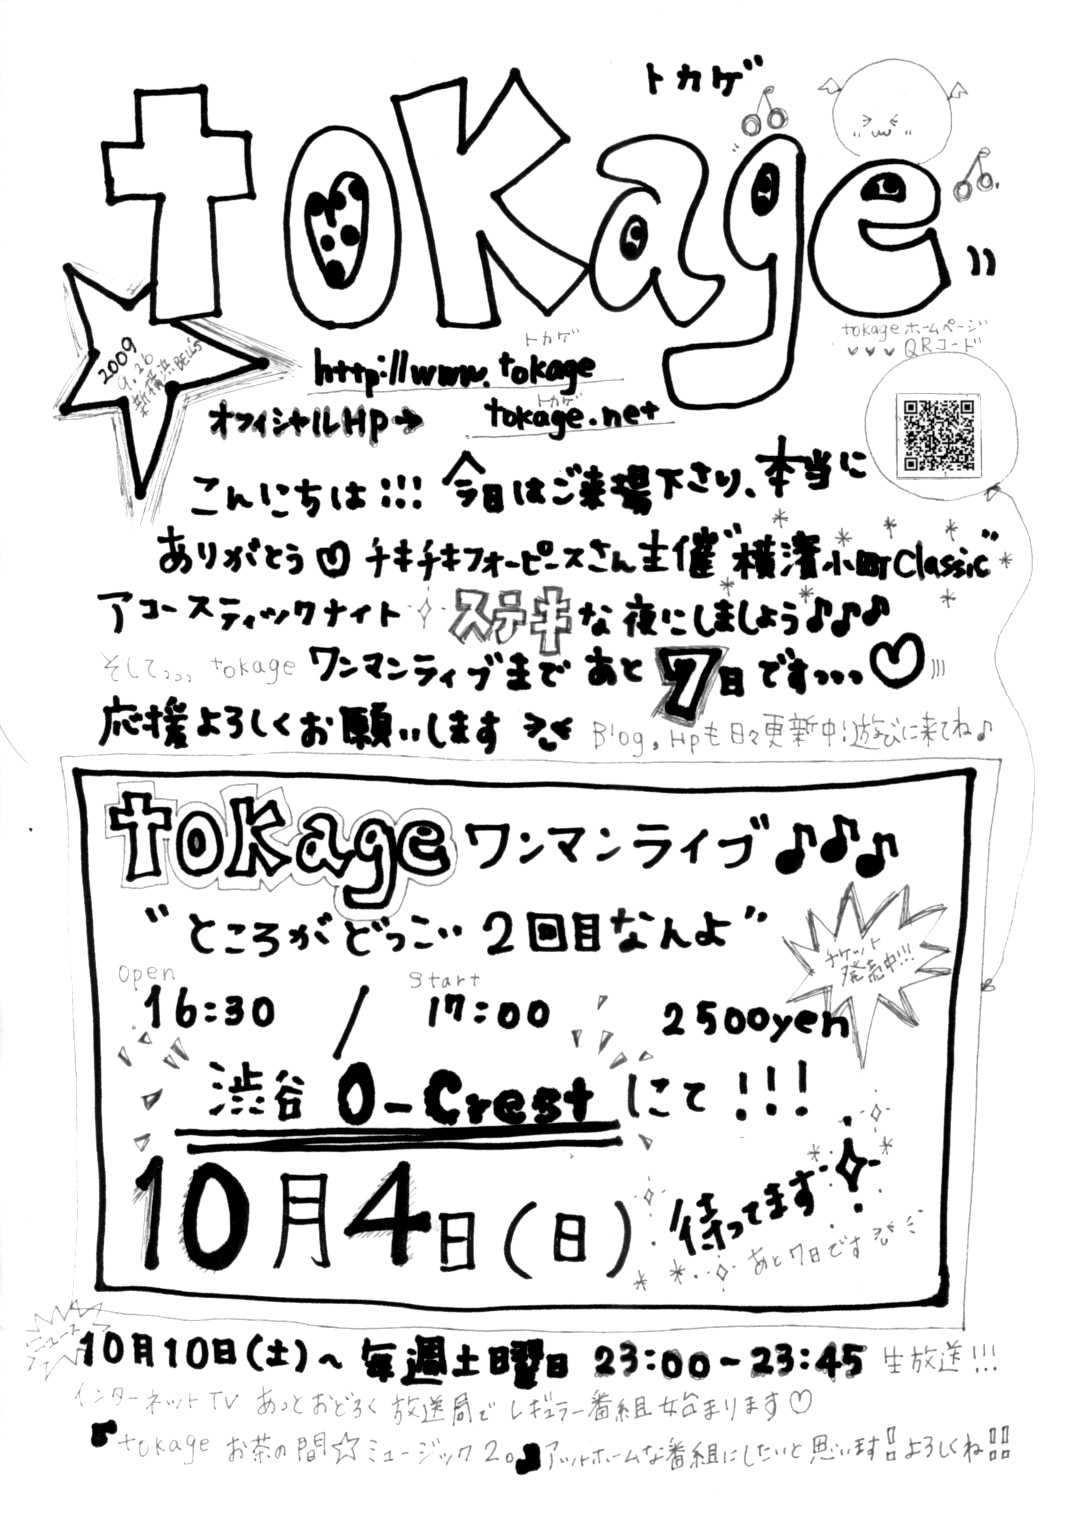 トカゲ
tokage
2009
9.26
新横浜BELL'S
tokageホームページ
QRコード
トカゲ
http://www.tokage
トカゲ
オフィシャルHP→ tokage.net
こんにちは!!! 今日はご来場下さり、本当に
ありがとう♡ チキチキフォーピースさん主催"横濱小町Classic"
アコースティックナイト ステキな夜にしましょう♪♪♪
そしてっっっ tokage ワンマンライブまで あと7日ですっっっ♡
応援よろしくお願いします Blog、Hpも日々更新中!遊びに来てね♪
tokage ワンマンライブ♪♪♪
"ところがどっこい 2回目なんよ"
チケット
発売中!!!
open start
16:30 / 17:00 2500yen
渋谷 O-Crest にて!!!
10月4日(日) 待ってます
あと7日です
ニュース
10月10日(土)~ 毎週土曜日 23:00~23:45 生放送!!!
インターネットTV あっとおどろく放送局で レギュラー番組始まります♡
『tokage お茶の間☆ミュージック2。』アットホームな番組にしたいと思います!よろしくね!!